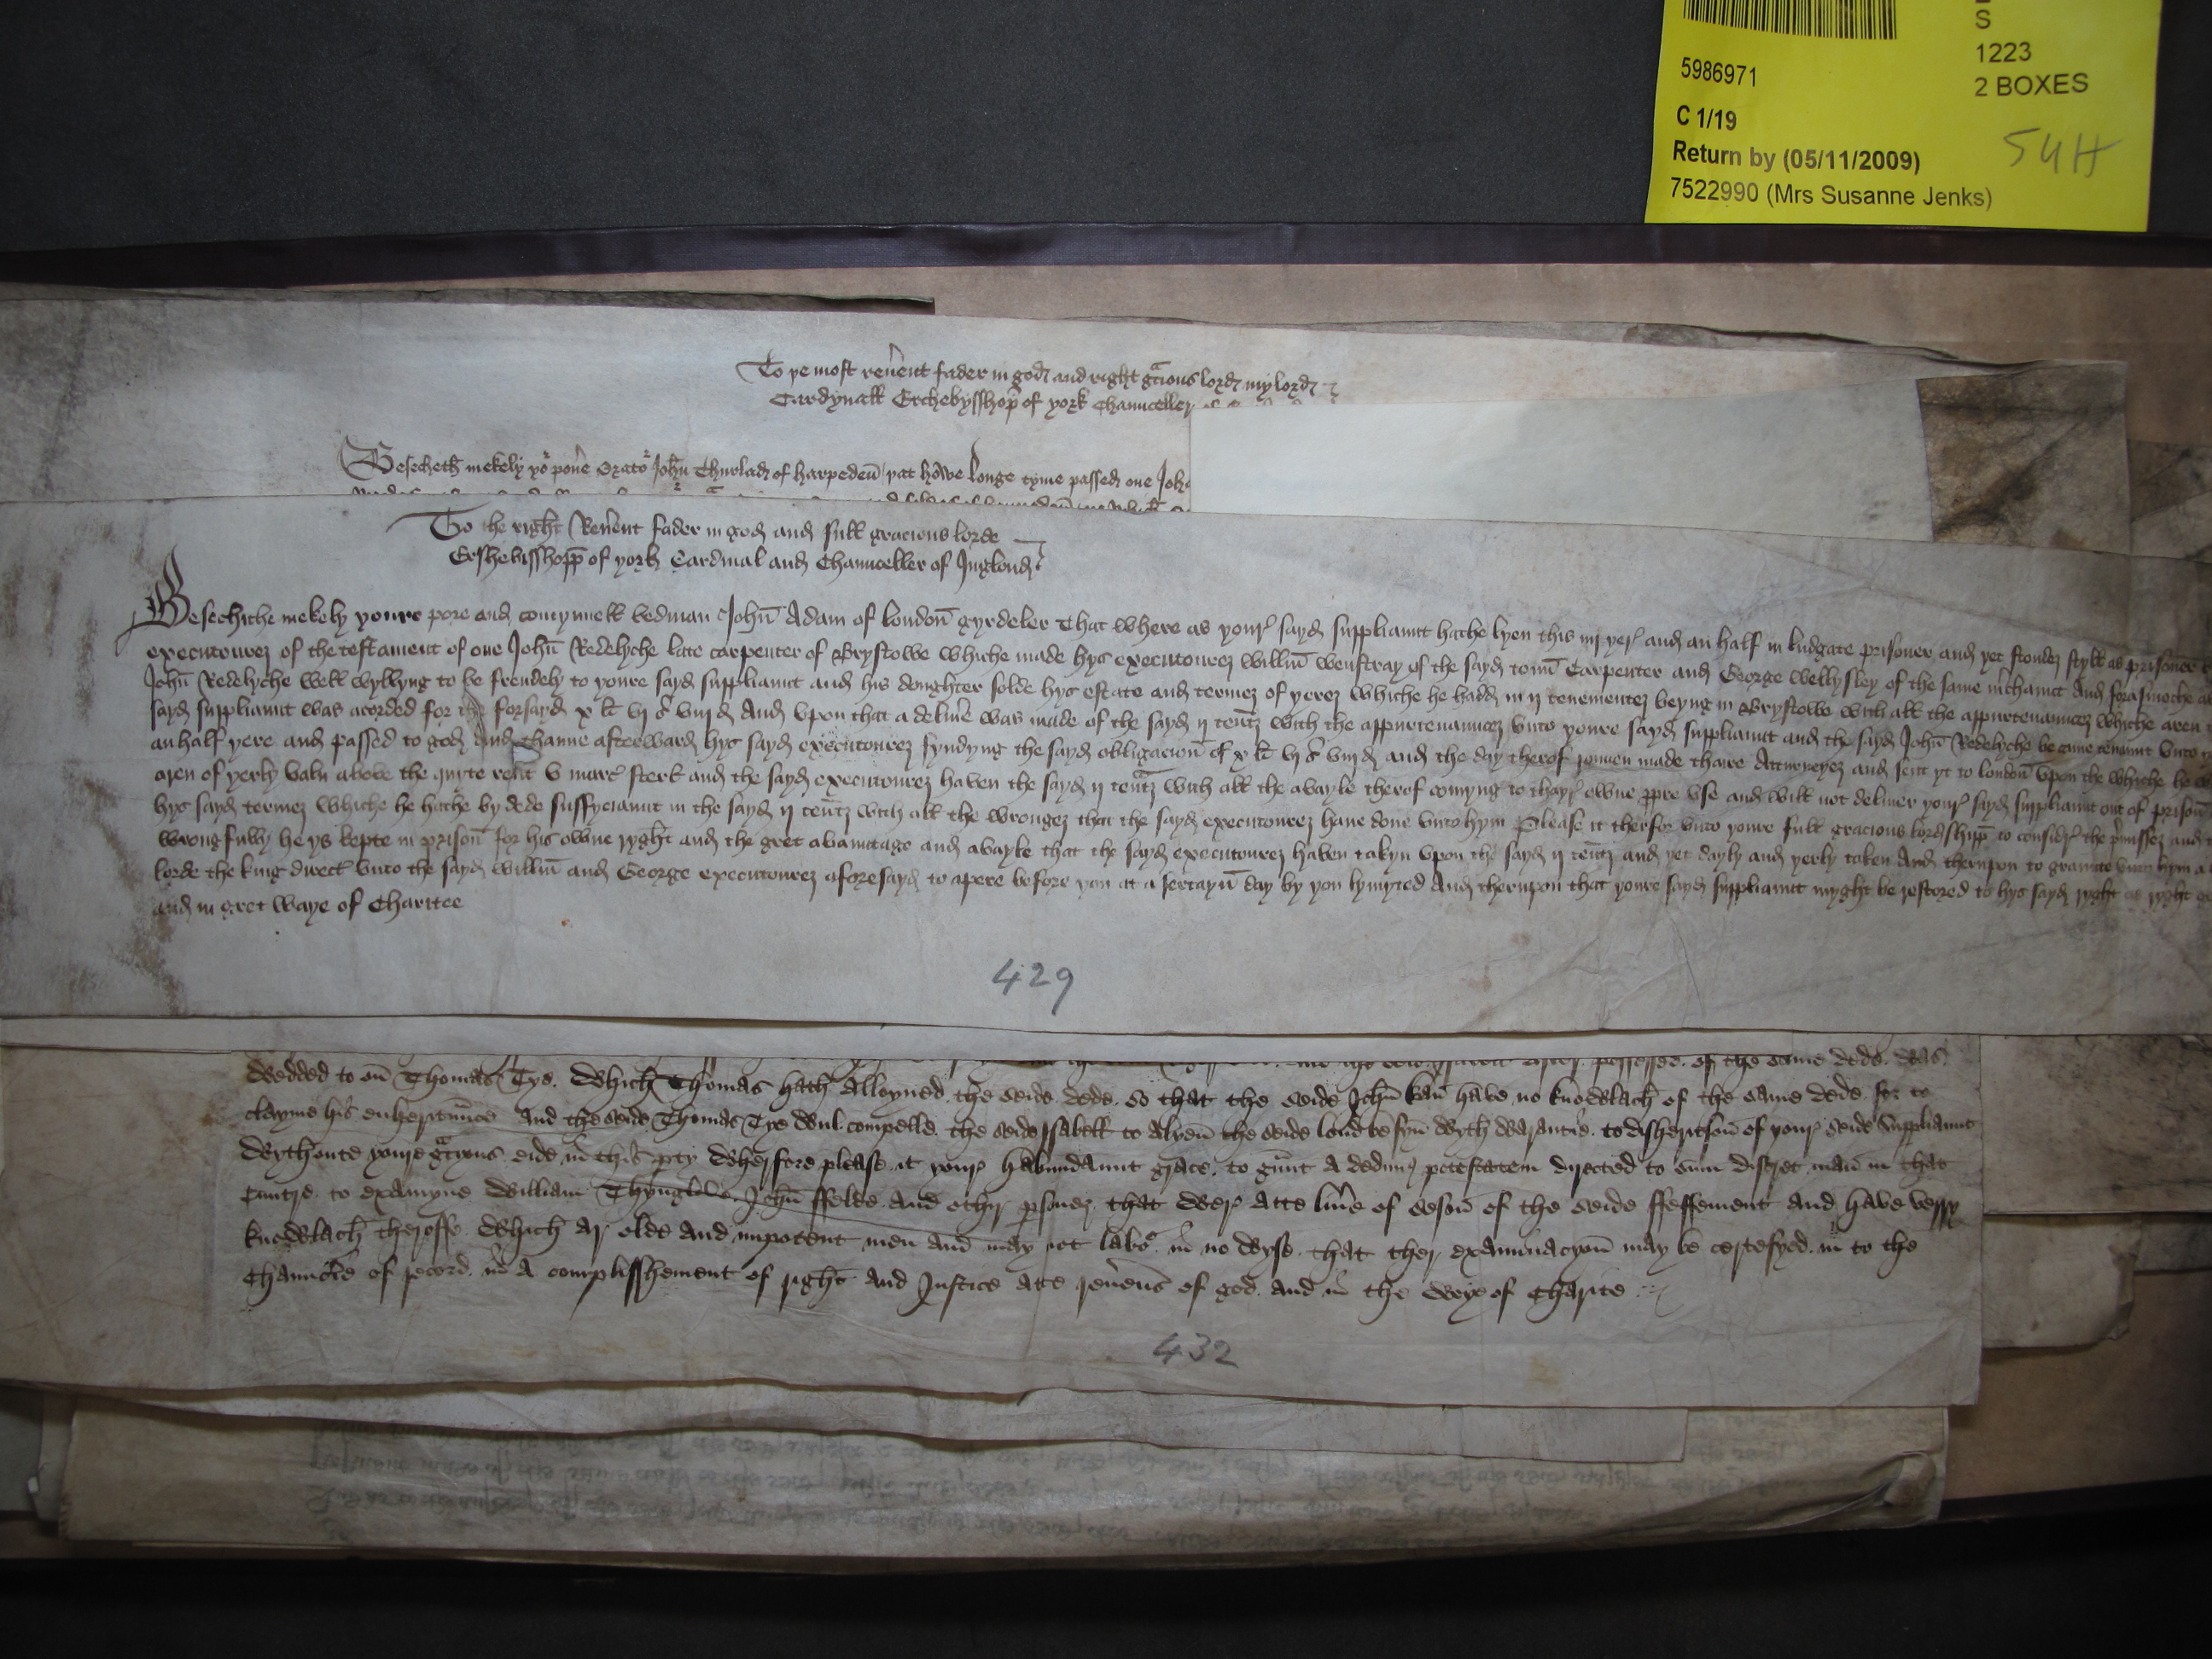 S
1223
2 BOXES
5986971
C 1/19
Return by (05/11/2009)
54H
7522990 (Mrs Susanne Jenks)
To þe most reu'ent fader in god and right gracious lord my lord
Cardynall Erchebysshop of york Chaunceller
Besecheth mekely yor pou'e Orator John Thurlad of harpeden þat howe longe tyme passed one Joh
To the right Reu'ent fader in god and full gracious lorde
Ershebisshopp of york Cardinal and Chaunceller of Inglond
Besechiche mekely youre pore and contynuell bedman John Adam of london gyrdeler That where as your sayd suppliaunt hathe lyen this iij yer and an half in ludgate prisoner and yet stondez styll as prisoner
executourez of the testament of one John Redelyche late carpenter of Brystowe whiche made hys executourez willm wenstray of the sayd toun Carpenter and George wellysley of the same m'chaunt And forasmoche as
John Redelyche well wyllyng to be frendely to youre sayd suppliaunt and his doughter solde hys estate and termez of yerez whiche he hadd in ij tenementez beyng in Brystowe with all the appurtenauncez whiche aren
sayd suppliaunt was acorded for the forsayd x li vj s viij d And vpon that a deliu'e was made of the sayd ij tentz with the appurtenauncez vnto youre sayd suppliaunt and the sayd John Redelyche became tenaunt vnto
an half yere and passed to god And thanne afterward hys sayd executourez fyndyng the sayd obligacion of x li vj s viij d and the day therof made thaire Attourneyez and sent yt to london vpon the whiche he
aren of yerly valu aboue the quyte rent v marc sterl and the sayd executourez haven the sayd ij tentz with all the avayle therof comyng to thayr owne ppre vse and will not deliuer your sayd suppliaunt out of prison
hys sayd termez whiche he hathe by dede suffyciaunt in the sayd ij tentz with all the wrongez that the sayd executourez haue done vnto hym Please it therfor vnto youre full gracious lordshipp to consider the p'missez and
wrongfully he ys kepte in prison for his owne ryght and the gret avauntage and avayle that the sayd executourez haven takyn vpon the sayd ij tentz and yet dayly and yerly taken And therupon to graunte vnto hym a
lorde the king direct vnto the sayd willm and George executourez aforesayd to apere before you at a sertayn day by you lymyted And therupon that youre sayd suppliaunt myght be restored to hys sayd ryght as ryght
and in gret waye of Charitee
429
possessed of the same dede was
wedded to on Thomas Tye Which Thomas hath Alloyned the seide dede so that the seide John kan have no knowlach of the same dede for to
clayme his enheritaunce And the seide Thomas Tye wul compelle the seide Isabell to Alyen the seide lond be fyn wyth warantie to disheritson of your seide Suppliaunt
Wythoute youre gracyous eide in this pty Wherfore please it your habundaunt grace to graunt A dedimus potestatem directed to sum discret man in that
Cuntre to examyne William Thynglobe John ffelde And other psonez that wer Atte liu'e of seson of the seide ffeffement And have verry
knowlach theroffe Which Ar olde And impotent men And may not labor in no wyse that ther examinacyon may be certefyed in to the
Chauncre of record in A complisshement of right And Justice Atte reu'ens of god And in the weye of Charite
432